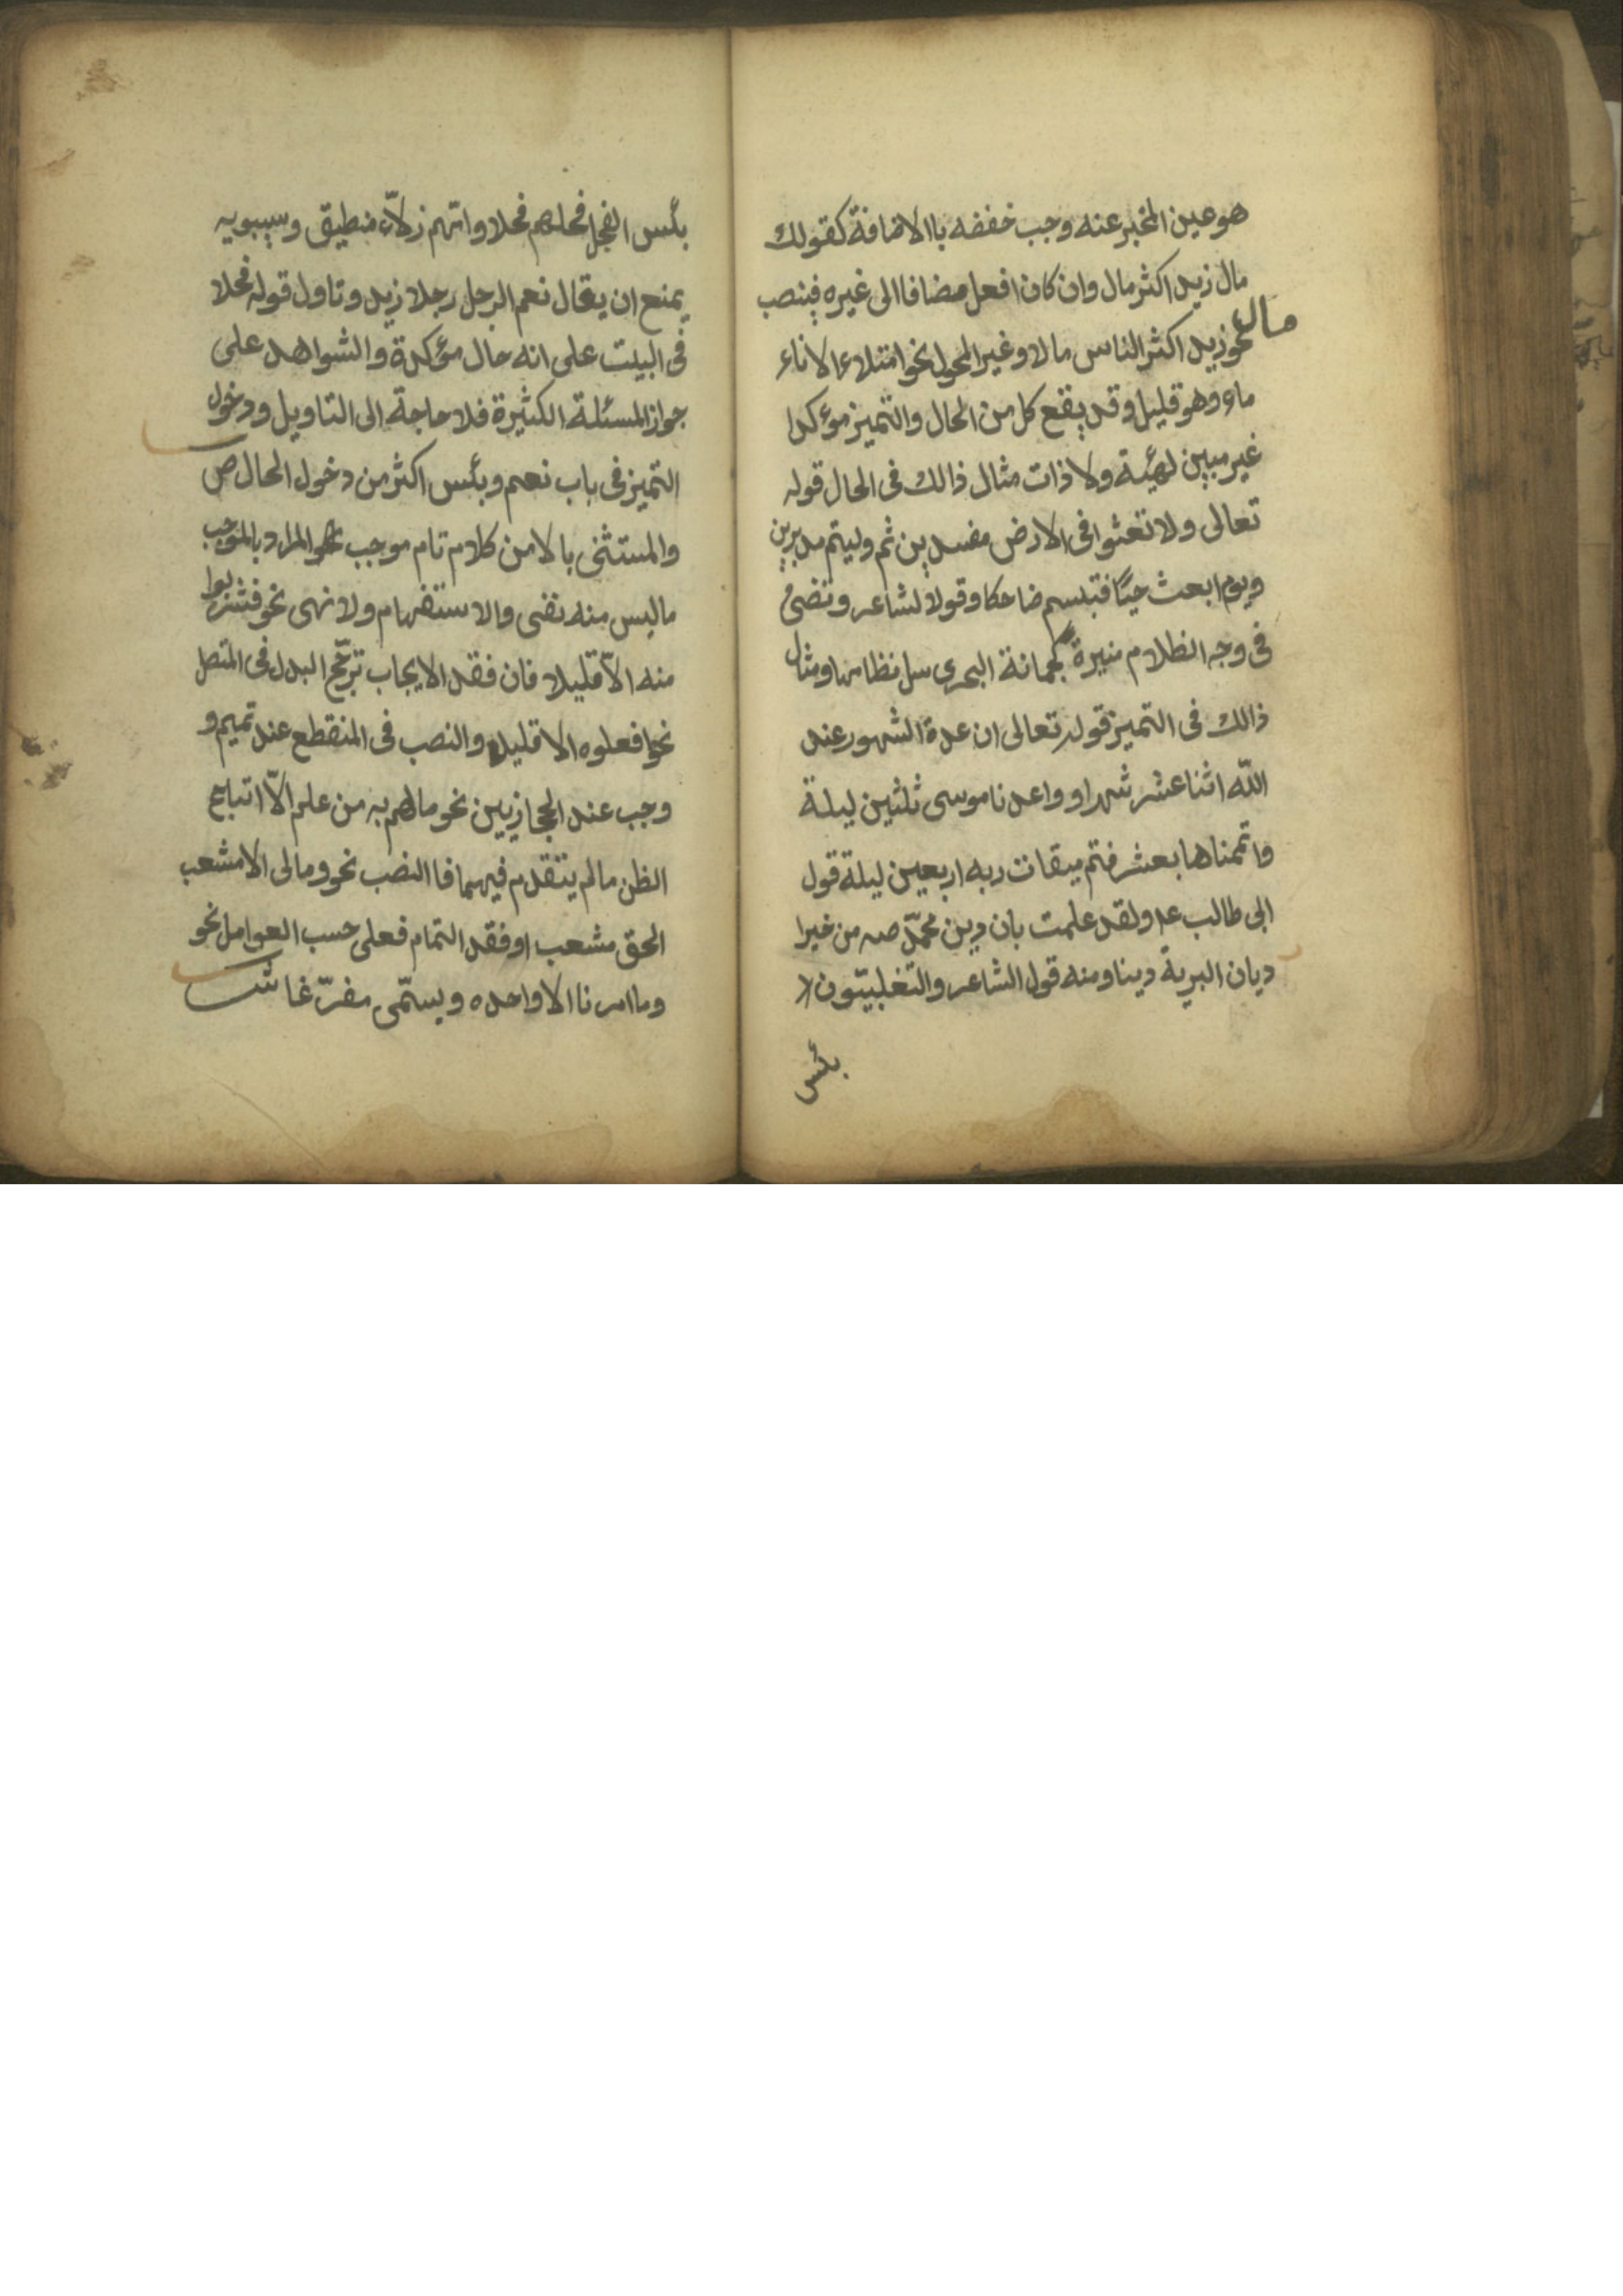 هو عين المخبر عنه وجب خفضه باالاضافة كقولك
مال زيد اكثر مال وان كان افعل مضافا الى غيره فينصب
مال
نحو زيد اكثر الناس مالا وغير المحول نحو امتلاء الاناء
ماء وهو قليل وقد يقع كل من الحال والتميز مؤكدا
غير مبين لهيئة ولا ذات مثال ذالك فى الحال قوله
تعالى ولا تعثوا فى الارض مفسدين ثم وليتم مدبرين
ويوم ابعث حيّا فتبسم ضاحكا وقول الشاعر وتضئ
فى وجه الظلام منيرة كجمانة البحرى سل نظامها ومثال
ذالك فى التميز قوله تعالى ان عدة الشهور عند
الله اثنا عشر شهرا و واعدنا موسى ثلثين ليلة
واتممناها بعشر فتم ميقات ربه اربعين ليلة قول
ابى طالب ع ولقد علمت بان دين محمّد ص من خير ا
ديان البرية دينا ومنه قول الشاعر والتغلبيّون
بئس
بئس الفحل فحلهم فحلا وامّهم زلاّء منطيق وسيبويه
يمنع ان يقال نعم الرجل رجلا زيد وتاول قوله فحلا
فى البيت على انه حال مؤكدة والشواهد على
جواز المسئلة الكثيرة فلا حاجة الى التاويل ودخول
التميز فى باب نعم وبئس اكثر من دخول الحال ص
والمستثنى بالا من كلام تام موجب نحو المراد بالموجب
ماليس منه نفى والاستفهام ولا نهى نحو فشربوا
منه الاّ قليلا فان فقد الايجاب ترجّح البدل فى المتصل
نحو افعلوه الا قليل والنصب فى المنقطع عند تميم و
وجب عند الحجازيين نحو مالهم به من علم الاّ اتباع
الظن مالم يتقدم فيهما فا النصب نحو ومالى الا مشعب
الحق مشعب او فقد التمام فعلى حسب العوامل نحو
وما امرنا الا واحده ويسمّى مفرّغا ش